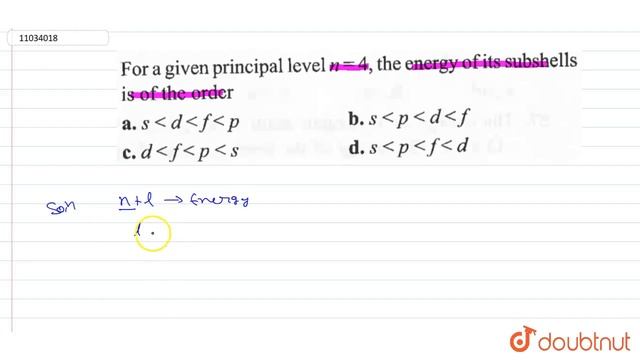 11034018
For a given principal level n = 4, the energy of its subshells
is of the order
a. s < d < f < p
b. s < p < d < f
c. d < f < p < s
d. s < p < f < d
Soln n+l → Energy
l
doubtnut